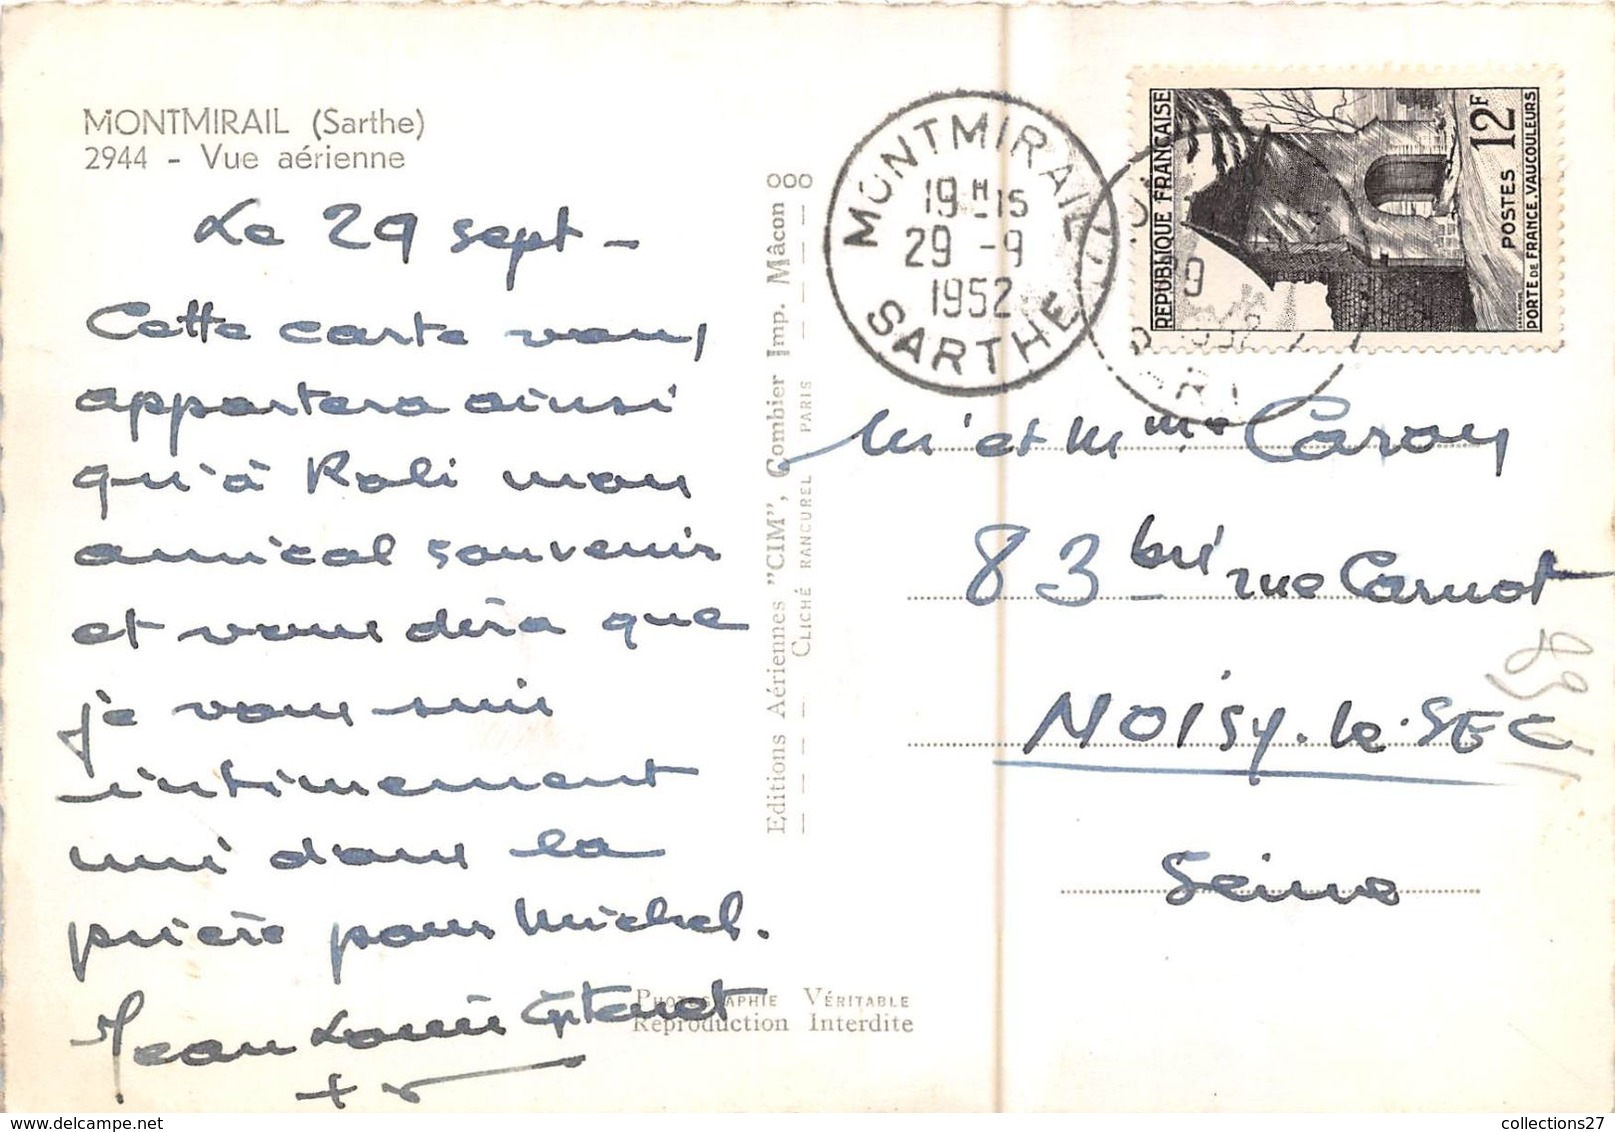 MONTMIRAIL (Sarthe)
2944 - Vue aérienne
Le 29 sept -
Cette carte vous
apportera ainsi
qu'à Roli mon
amical souvenir
et vous dira que
je vous suis
intimement
uni dans la
prière pour Michel.
Jean Louis
Editions Aériennes "CIM", Combier Imp. Mâcon
CLICHÉ RANCUREL PARIS
PHOTOGRAPHIE VÉRITABLE
Reproduction Interdite
MONTMIRAIL
19H15
29 -9
1952
SARTHE
REPUBLIQUE FRANÇAISE
12F
POSTES
PORTE DE FRANCE. VAUCOULEURS
M. et Mme Caron
83 bis rue Carnot
NOISY-le-SEC
Seine
collections27